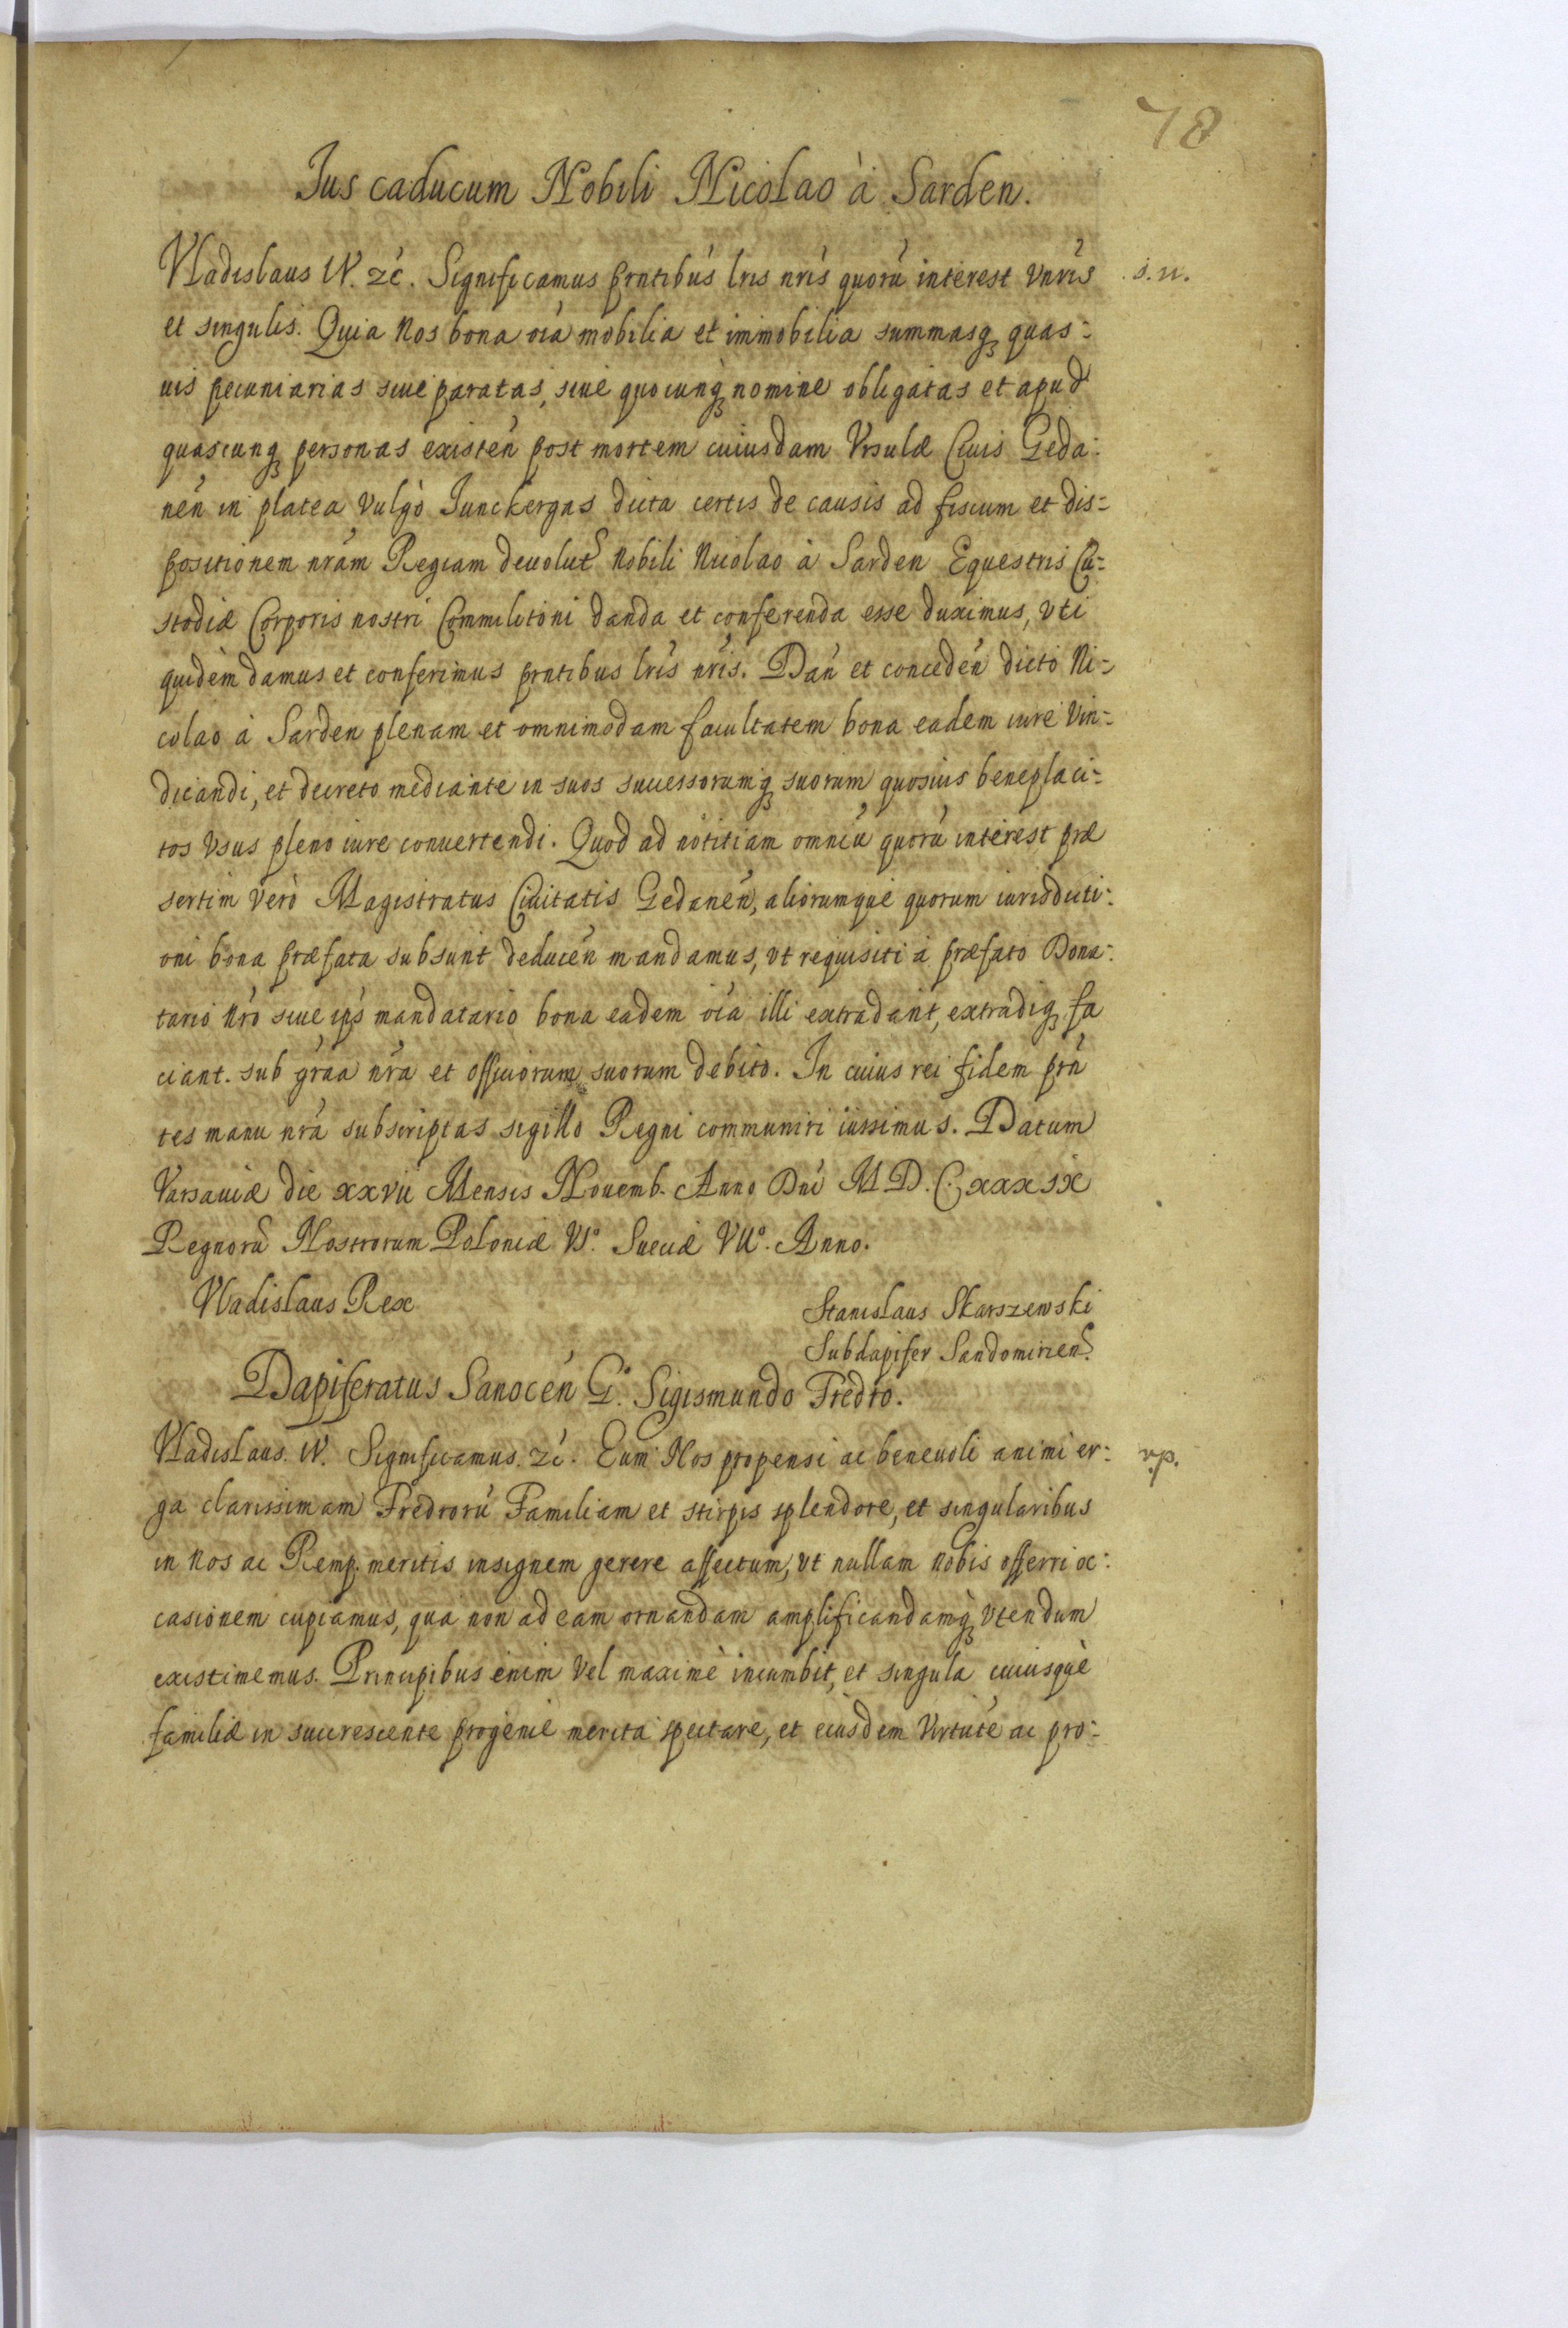 78
Ius caducum Nobili Nicolao à Sarden.
Vladislaus IV. zć. Significamus prntibus lris nris quorũ interest vnvis s. n.
et singulis. Quia Nos bona oĩa mobilia et immobilia summasq́ quas-
uis pecuniarias siue paratas, siue quocunq́ nomine obligatas et apud
quascunq́ personas existeń post mortem cuiusdam Vrsulæ Ciuis Geda-
neń in platea vulgò Junckergas dicta certis de causis ad fiscum et dis-
positionem nrãm Regiam deuolut̃ Nobili Nicolao à Sarden Equestris Cu-
stodiæ Corporis nostri Commilitoni danda et conferenda esse duximus, vti
quidem damus et conferimus prntibus lris nris. Dań et concedeń dicto Ni-
colao à Sarden plenam et omnimodam facultatem bona eadem iure vin-
dicandi, et decreto mediante in suos successorumq́ suorum quosuis beneplaci-
tos vsus pleno iure conuertendi. Quod ad notitiam omniũ quorũ interest præ
sertim verò Magistratus Ciuitatis Gedaneń, aliorumque quorum iurisdicti-
oni bona præfata subsunt deduceń mandamus, vt requisiti à præfato Dona-
tario nrõ siue ips mandatario bona eadem oĩa illi extradant, extradiq́ fa
ciant. sub grãa nrã et officiorum suorum debito. In cuius rei fidem prñ
tes manu nrã subscriptas sigillo Regni communiri iussimus. Datum
Varsauiæ die xxvii Mensis Nouemb. Anno Dnĩ M.D.C.xxxix
Regnorũ Nostrorum Poloniæ VIº. Sueciæ VIIº. Anno.
Vladislaus Rex Stanislaus Skarszewski
Subdapifer Sandomirień.
Dapiferatus Sanoceń G. Sigismundo Fredro.
Vladislaus. IV. Significamus. zć. Eum Nos propensi ac beneuoli animi er- rp.
ga clarissimam Fredrorũ Familiam et stirpis splendore, et singularibus
in Nos ac Remp. meritis insignem gerere affectum, vt nullam nobis offerri oc-
casionem cupiamus, qua non ad eam ornandam amplificandamq́ vtendum
existimemus. Principibus enim vel maximè incumbit, et singula cuiusquè
familiæ in succrescente progenie merita spectare, et eiusdem virtute ac pro-